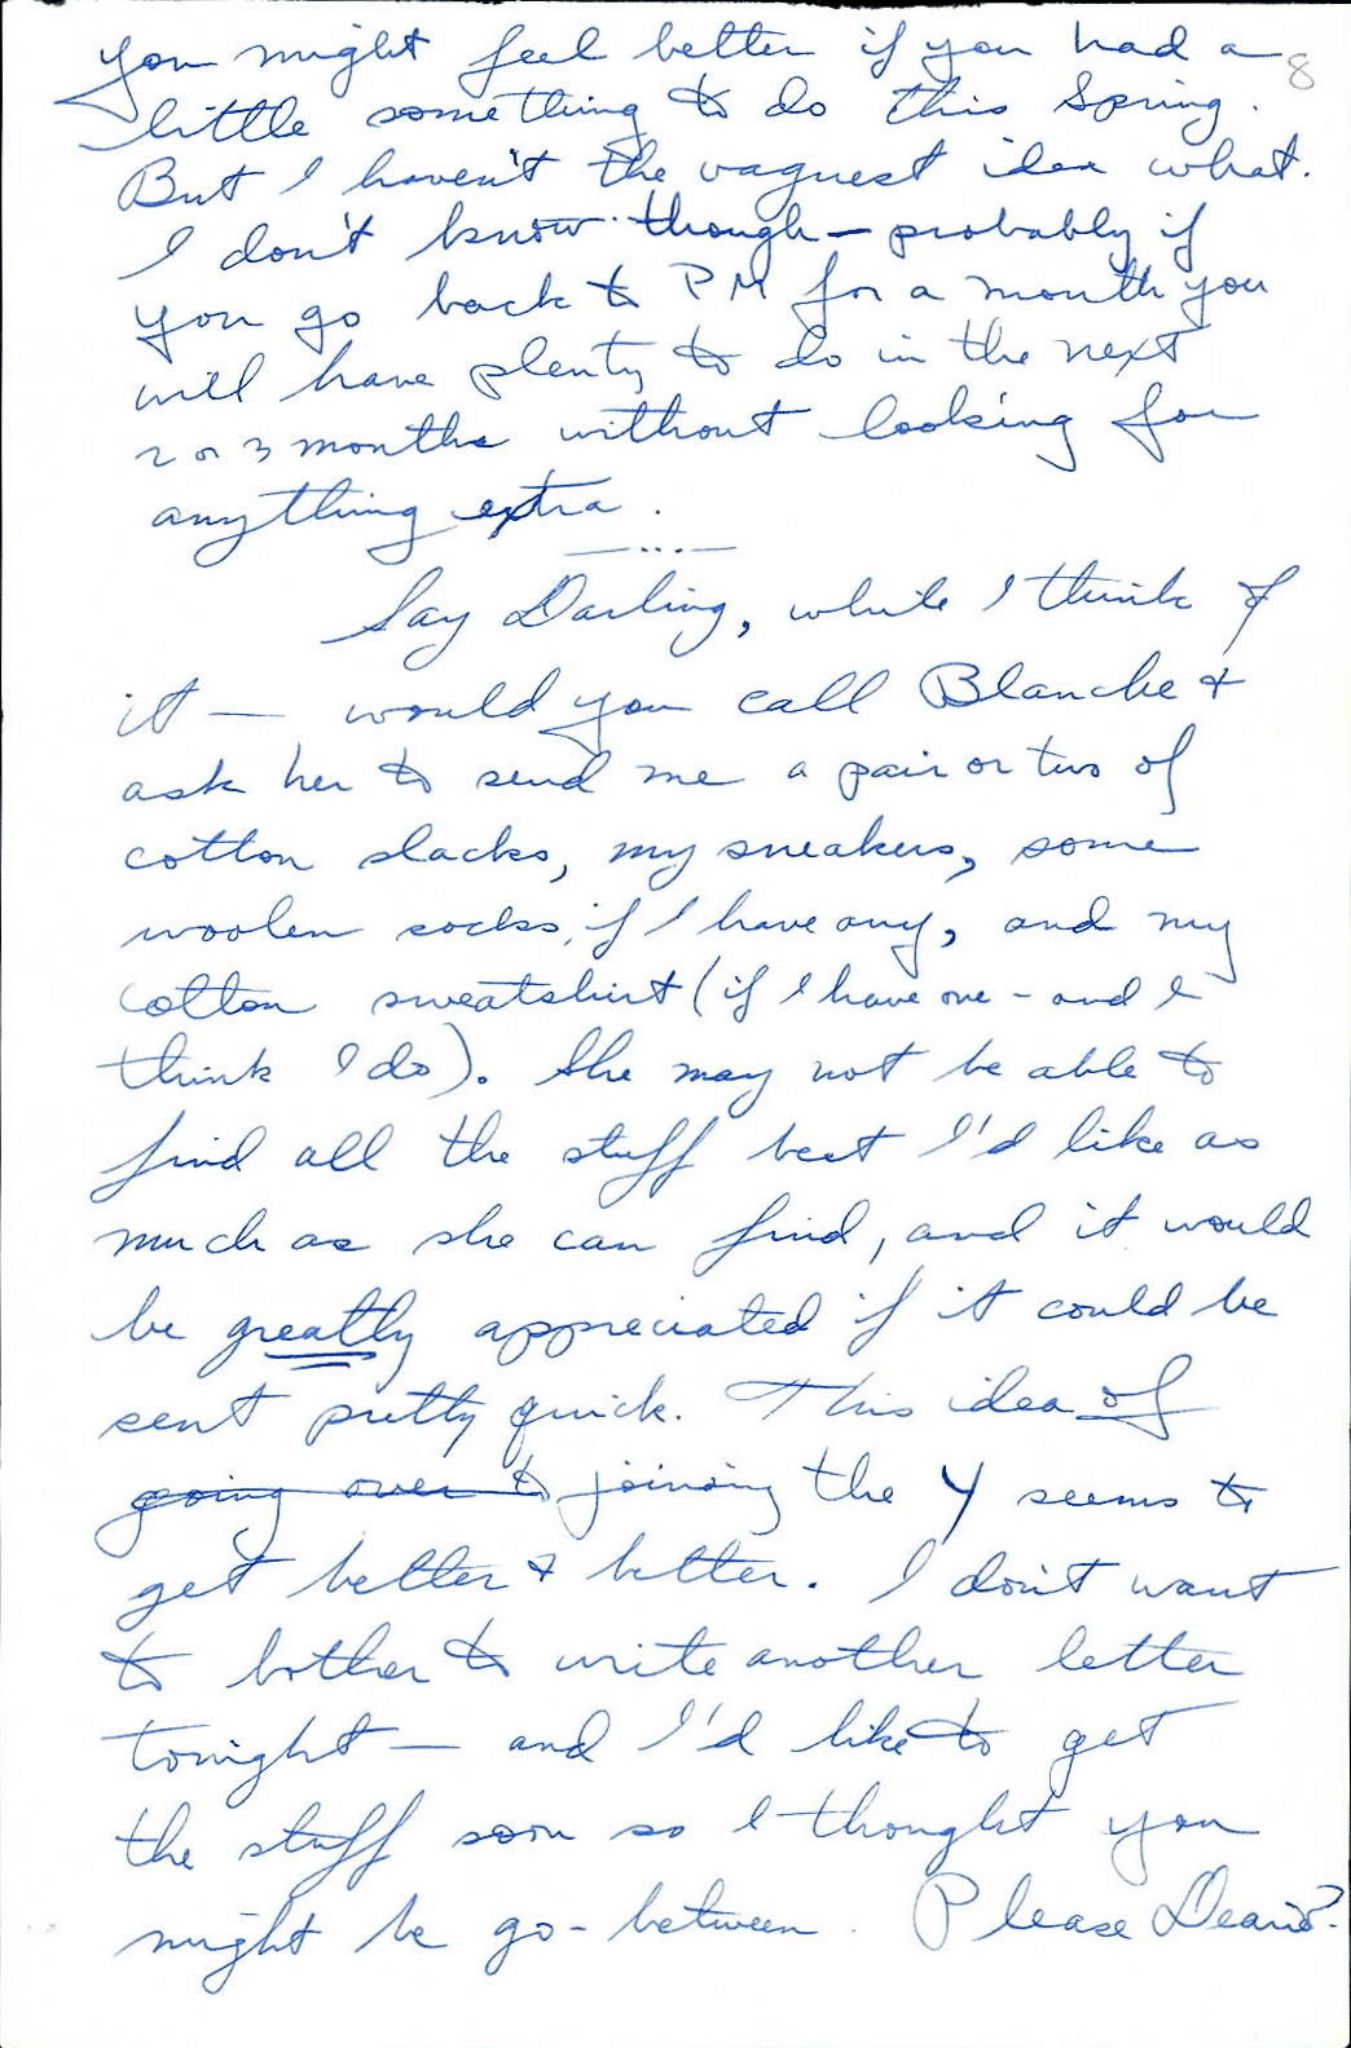 8
you might feel better if you had a
little something to do this Spring.
But I haven't the vaguest idea what.
I don't know though — probably if
you go back to PM for a month you
will have plenty to do in the next
2 or 3 months without looking for
anything extra.
—...—
Say Darling, while I think of
it — would you call Blanche &
ask her to send me a pair or two of
cotton slacks, my sneakers, some
woolen socks, if I have any, and my
cotton sweatshirt (if I have one - and I
think I do). She may not be able to
find all the stuff but I'd like as
much as she can find, and it would
be greatly appreciated if it could be
sent pretty quick. This idea of
going over to joining the Y seems to
get better & better. I don't want
to bother to write another letter
tonight — and I'd like to get
the stuff soon so I thought you
might be go-between. Please Dearie?